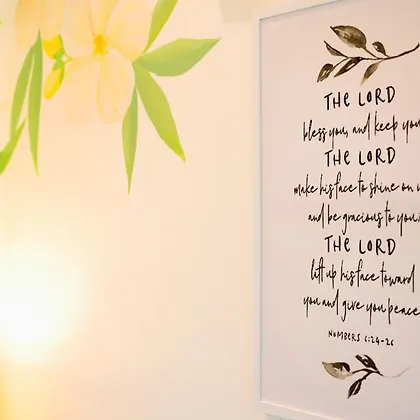 THE LORD
bless you, and keep you
THE LORD
make his face to shine on
and be gracious to you
THE LORD
lift up his face toward
you and give you peace
NUMBERS 6:24-26